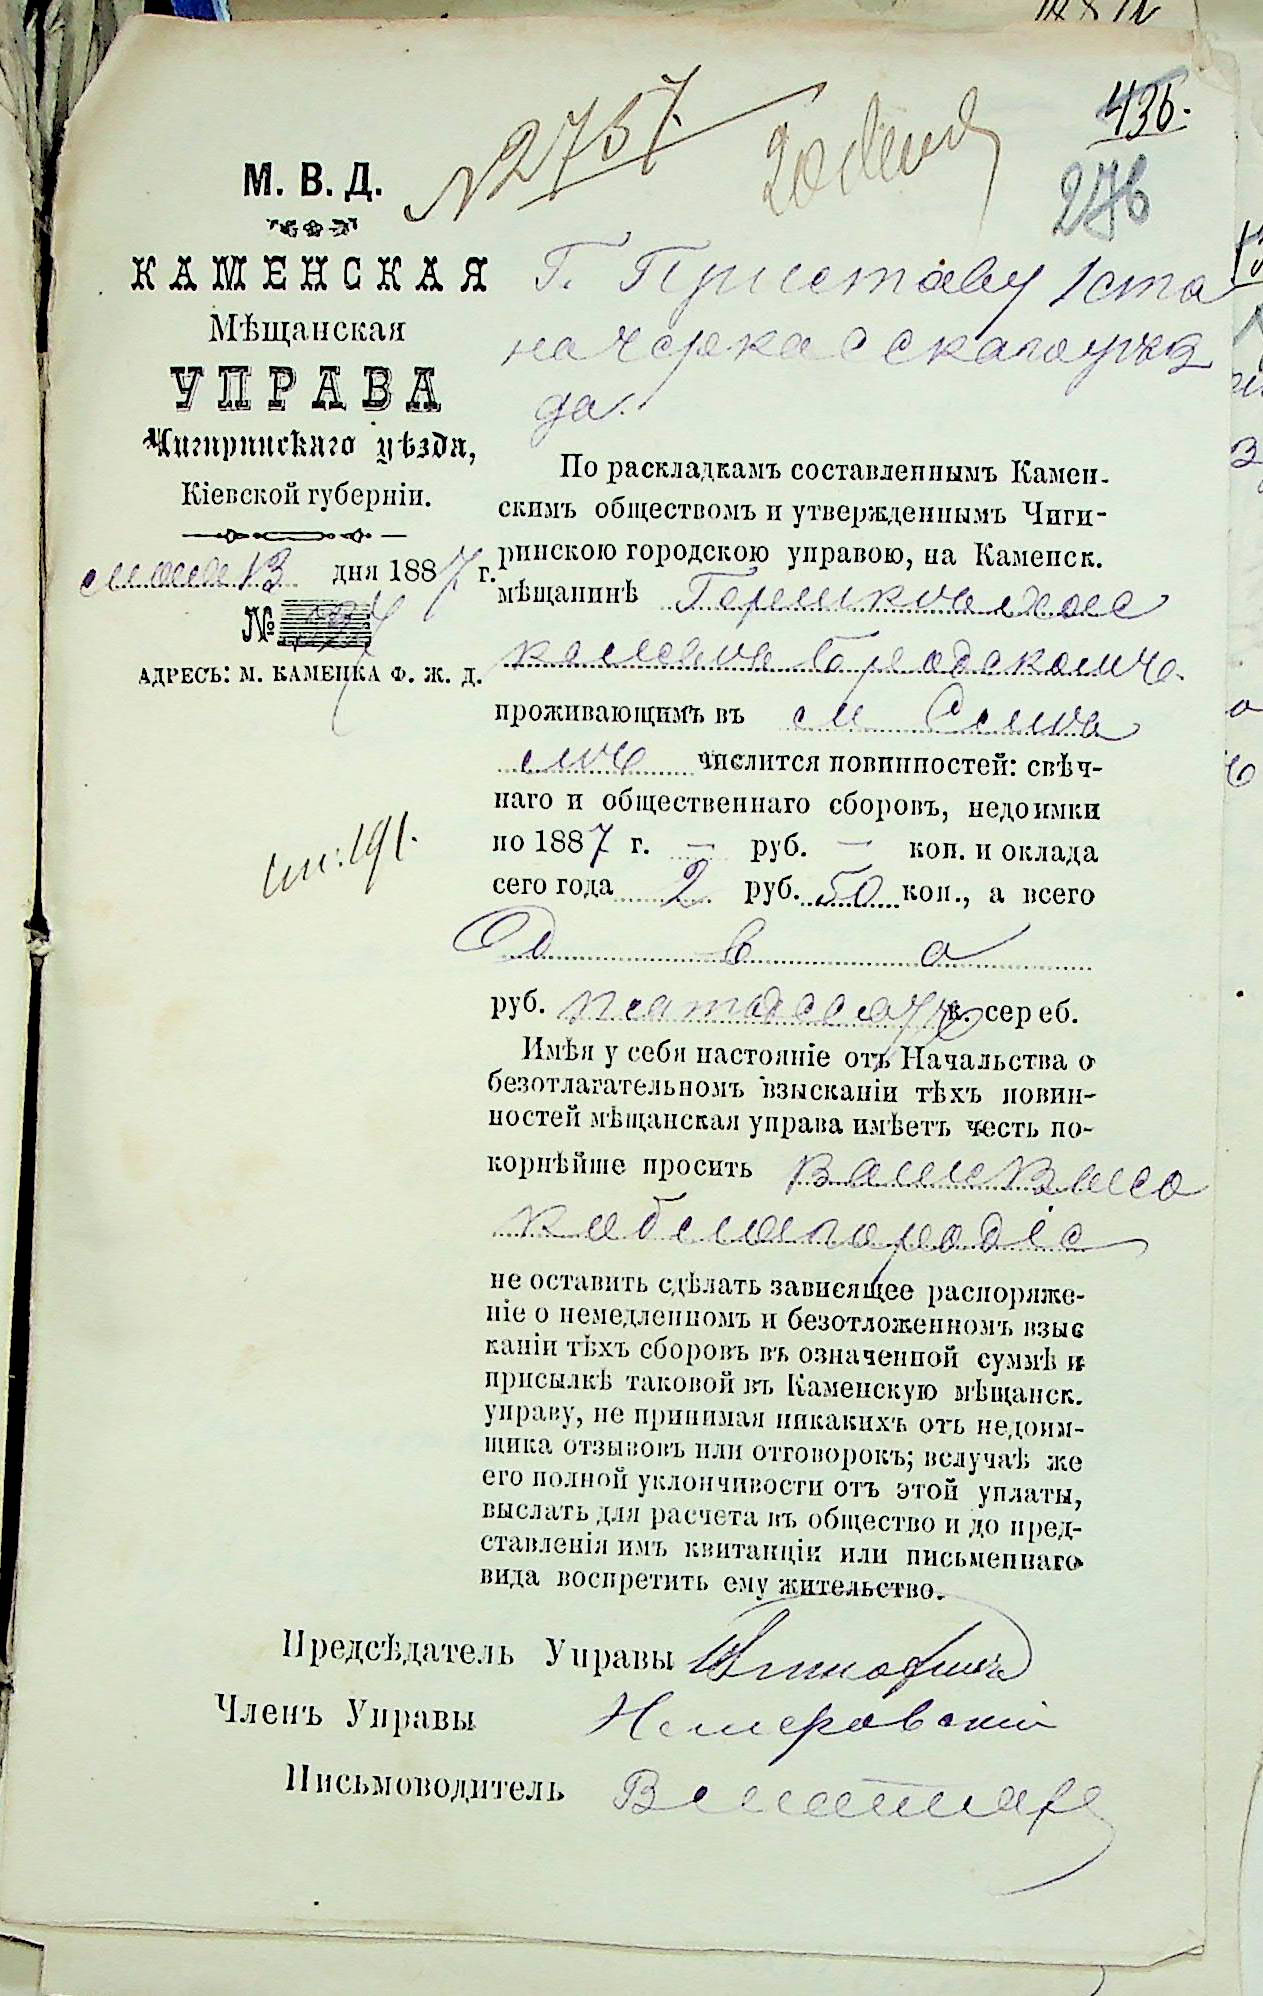 436.
276
№ 2757.
М. В. Д.
КАМЕНСКАЯ
Мѣщанская
УПРАВА
Чигиринскаго уѣзда,
Кіевской губерніи.
13 дня 1887 г.
№
АДРЕСЪ: М. КАМЕНКА Ф. Ж. Д.
Г. Приставу 1 ста
на Черкасскаго уѣз
да.
По раскладкамъ составленнымъ Камен-
скимъ обществомъ и утвержденнымъ Чиги-
ринскою городскою управою, на Каменск.
мѣщанинѣ
Бродскомъ
проживающимъ въ м Смѣла
числится повинностей: свѣч-
наго и общественнаго сборовъ, недоимки
по 1887 г. — руб. — коп. и оклада
сего года 2 руб. 50 коп., а всего
Два
руб. пятдесятъ к. сереб.
Имѣя у себя настояніе отъ Начальства о
безотлагательномъ взысканіи тѣхъ повин-
ностей мѣщанская управа имѣетъ честь по-
корнѣйше просить Ваше Высо
коблагородіе
не оставить сдѣлать зависящее распоряже-
ніе о немедленномъ и безотложенномъ взыс
каніи тѣхъ сборовъ въ означенной суммѣ и
присылкѣ таковой въ Каменскую мѣщанск.
управу, не принимая никакихъ отъ недоим-
щика отзывовъ или отговорокъ; вслучаѣ же
его полной уклончивости отъ этой уплаты,
выслать для расчета въ общество и до пред-
ставленія имъ квитанціи или письменнаго
вида воспретить ему жительство.
Предсѣдатель Управы
Членъ Управы Немеровскій
Письмоводитель